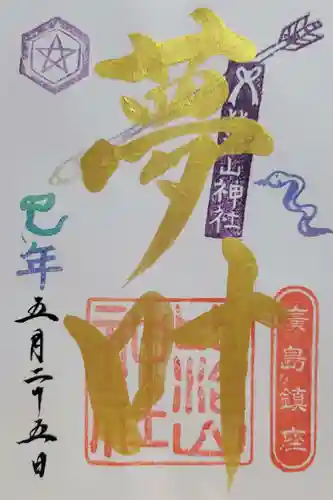 夢叶
山神社
巳年
五月二十五日
廣島鎮座